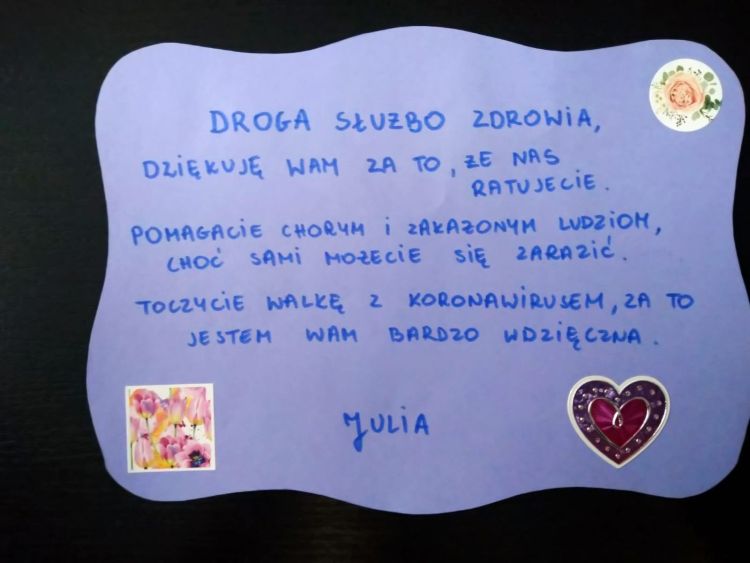 DROGA SŁUŻBO ZDROWIA,
DZIĘKUJĘ WAM ZA TO, ŻE NAS
RATUJECIE.
POMAGACIE CHORYM i ZAKAŻONYM LUDZIOM,
CHOĆ SAMI MOŻECIE SIĘ ZARAZIĆ.
TOCZYCIE WALKĘ Z KORONAWIRUSEM, ZA TO
JESTEM WAM BARDZO WDZIĘCZNA.
JULIA